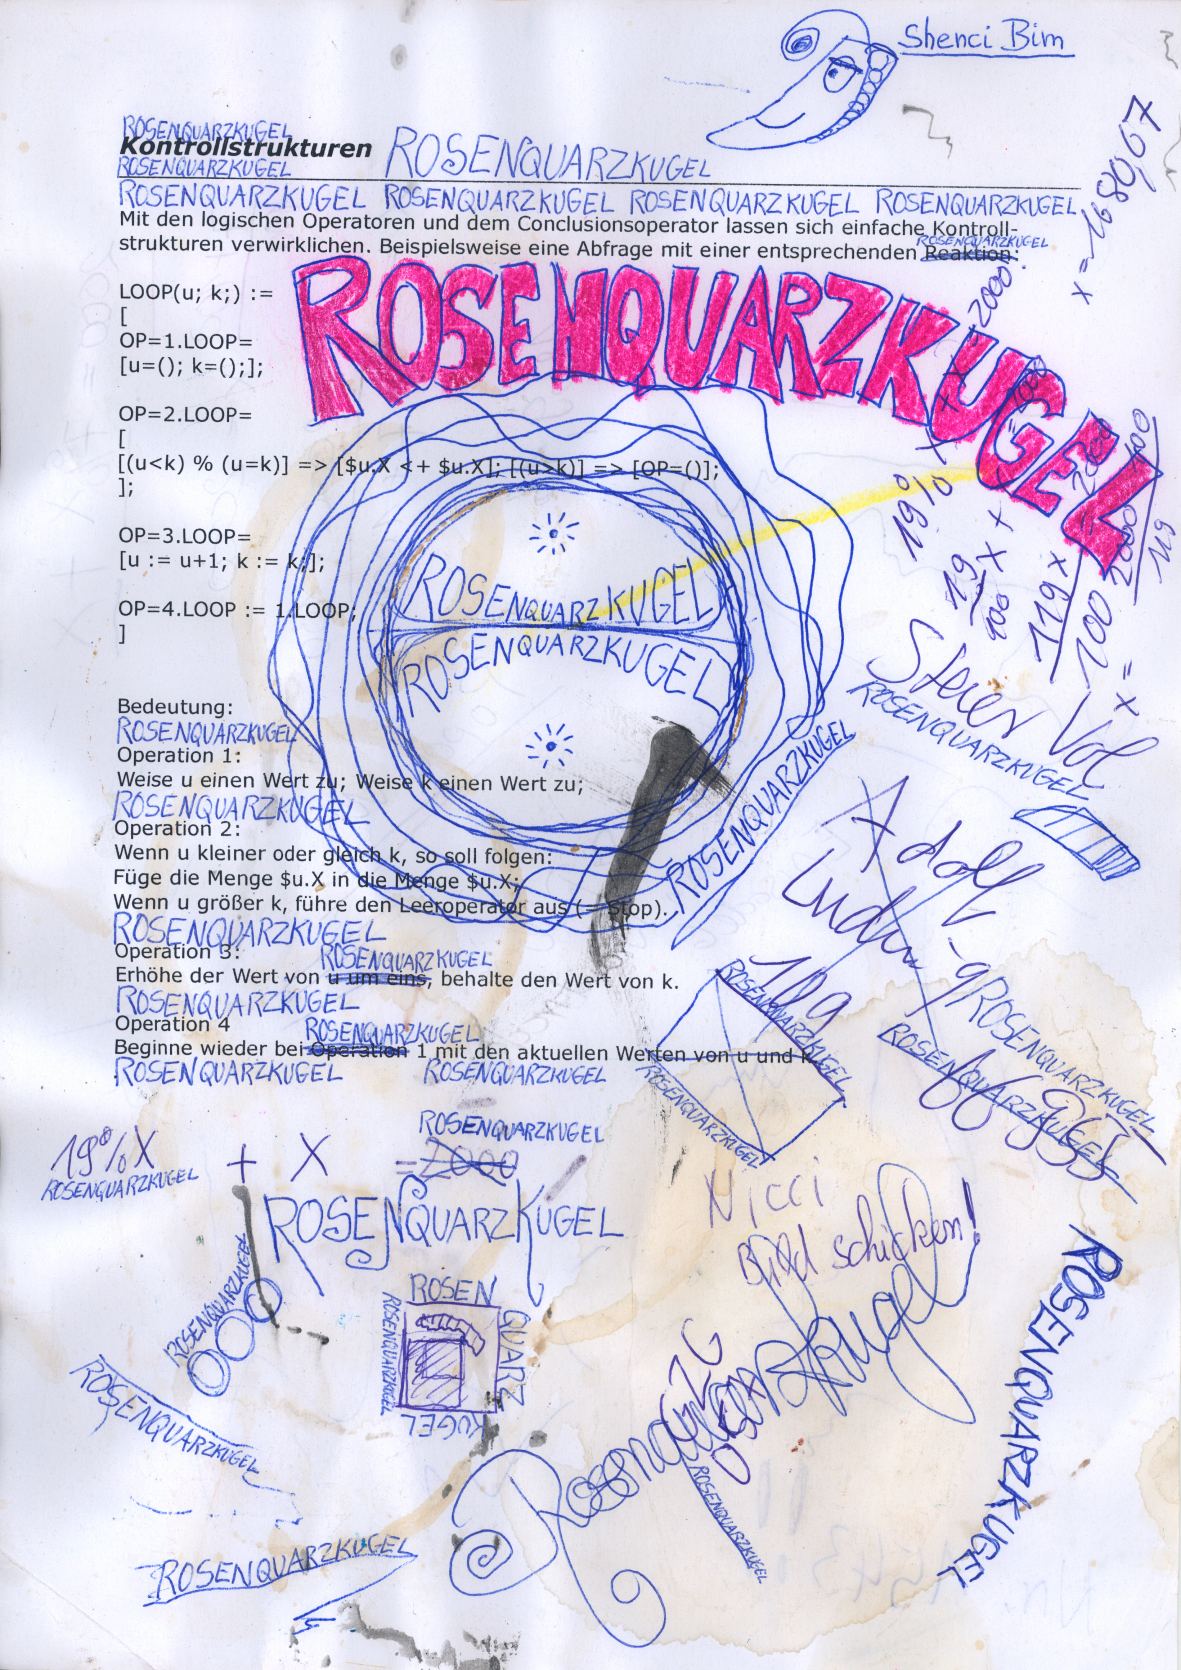 Shenci Bim
ROSENQUARZKUGEL
Kontrollstrukturen
ROSENQUARZKUGEL
ROSENQUARZKUGEL
ROSENQUARZKUGEL ROSENQUARZKUGEL ROSENQUARZKUGEL ROSENQUARZKUGEL
Mit den logischen Operatoren und dem Conclusionsoperator lassen sich einfache Kontroll-
strukturen verwirklichen. Beispielsweise eine Abfrage mit einer entsprechenden Reaktion:
ROSENQUARZKUGEL
x = 1680,67
ROSENQUARZKUGEL
LOOP(u; k;) :=
[
OP=1.LOOP=
[u=(); k=();];
OP=2.LOOP=
[
[(u<k) % (u=k)] => [$u.X <+ $u.X]; [(u>k)] => [OP=()];
];
OP=3.LOOP=
[u := u+1; k := k;];
OP=4.LOOP := 1.LOOP;
]
ROSENQUARZKUGEL
ROSENQUARZKUGEL
19% X + X = 2000
19
100 X + X
119 X
100
X =
119
Steuer Vol
ROSENQUARZKUGEL
Bedeutung:
ROSENQUARZKUGEL
Operation 1:
Weise u einen Wert zu; Weise k einen Wert zu;
ROSENQUARZKUGEL
Operation 2:
Wenn u kleiner oder gleich k, so soll folgen:
Füge die Menge $u.X in die Menge $u.X;
Wenn u größer k, führe den Leeroperator aus (= Stop).
ROSENQUARZKUGEL
ROSENQUARZKUGEL
Operation 3:
ROSENQUARZKUGEL
Erhöhe der Wert von u um eins, behalte den Wert von k.
ROSENQUARZKUGEL
Operation 4
ROSENQUARZKUGEL
Beginne wieder bei Operation 1 mit den aktuellen Werten von u und k.
ROSENQUARZKUGEL ROSENQUARZKUGEL
Adolf-
Ludwig
10a
ROSENQUARZKUGEL
ROSENQUARZKUGEL
ROSENQUARZKUGEL
ROSENQUARZKUGEL
ROSENQUARZKUGEL
19% X + X = 2000
ROSENQUARZKUGEL
ROSENQUARZKUGEL
Nicci
Bild schicken!
ROSENQUARZKUGEL
ROSEN
QUARZ
KUGEL
ROSENQUARZKUGEL
ROSENQUARZKUGEL
Rosenquarzkugel
ROSENQUARZKUGEL
ROSENQUARZKUGEL
ROSENQUARZKUGEL